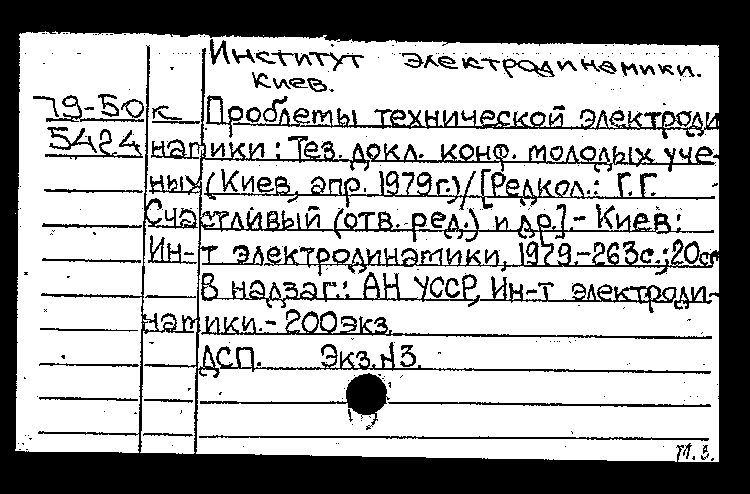 Институт электродинамики.
Киев.
79-50 к Проблемы технической электроди
5424 намики: Тез. докл. конф. молодых уче-
ных (Киев, апр. 1979г.)/[Редкол.: Г.Г.
Счастливый (отв. ред.) и др.].- Киев:
Ин-т электродинамики, 1979.-263с.;20см
В надзаг.: АН УССР, Ин-т электроди-
намики.- 200экз.
ДСП. Экз.N3.
М.З.